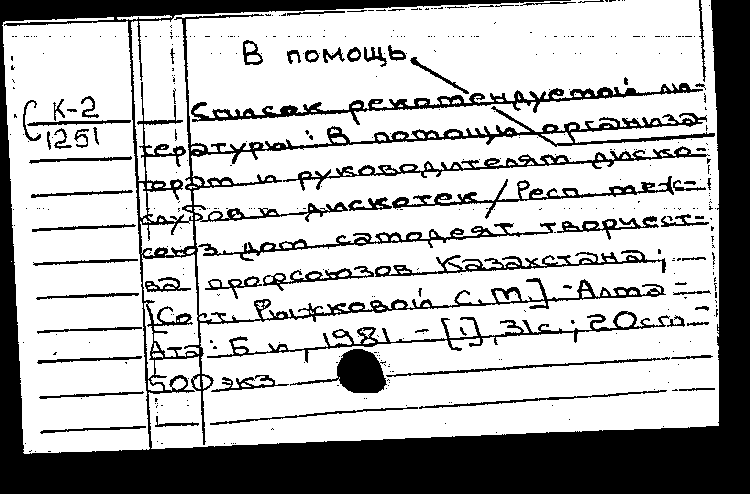 В помощь
К-2
С 1251
Список рекомендуемой ли-
тературы: В помощь организа-
торам и руководителям диско-
клубов и дискотек / Респ. меж-
союз. дом самодеят. творчест-
ва профсоюзов Казахстана;
[Сост. Рыжковой С.М.]. - Алма-
Ата: Б и, 1981. - [1], 31с.; 20см -
500 экз